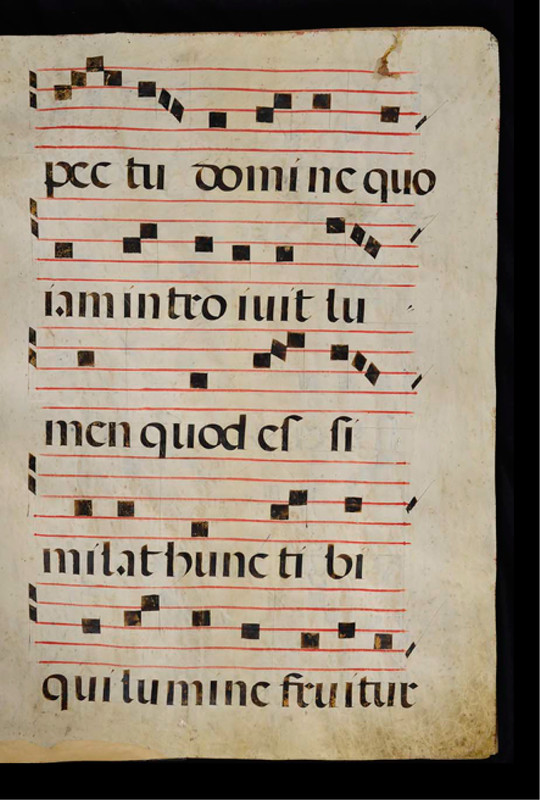 pec tu domine quo
iam intro iuit lu
men quod eſ ſi
milat hunc ti bi
qui lumine fruitur